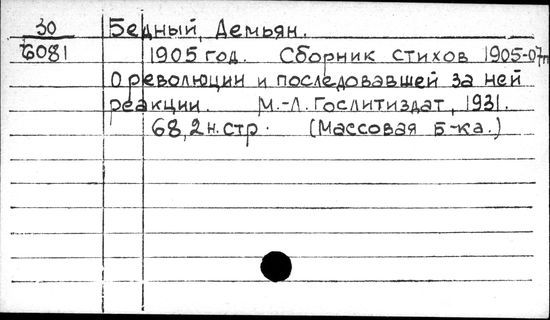 30 Бедный, Демьян.
6081 1905 год. Сборник стихов 1905-07гг
О революции и последовавшей за ней
реакции. М.-Л. Гослитиздат, 1931.
68, 2 н. стр. (Массовая б-ка.)